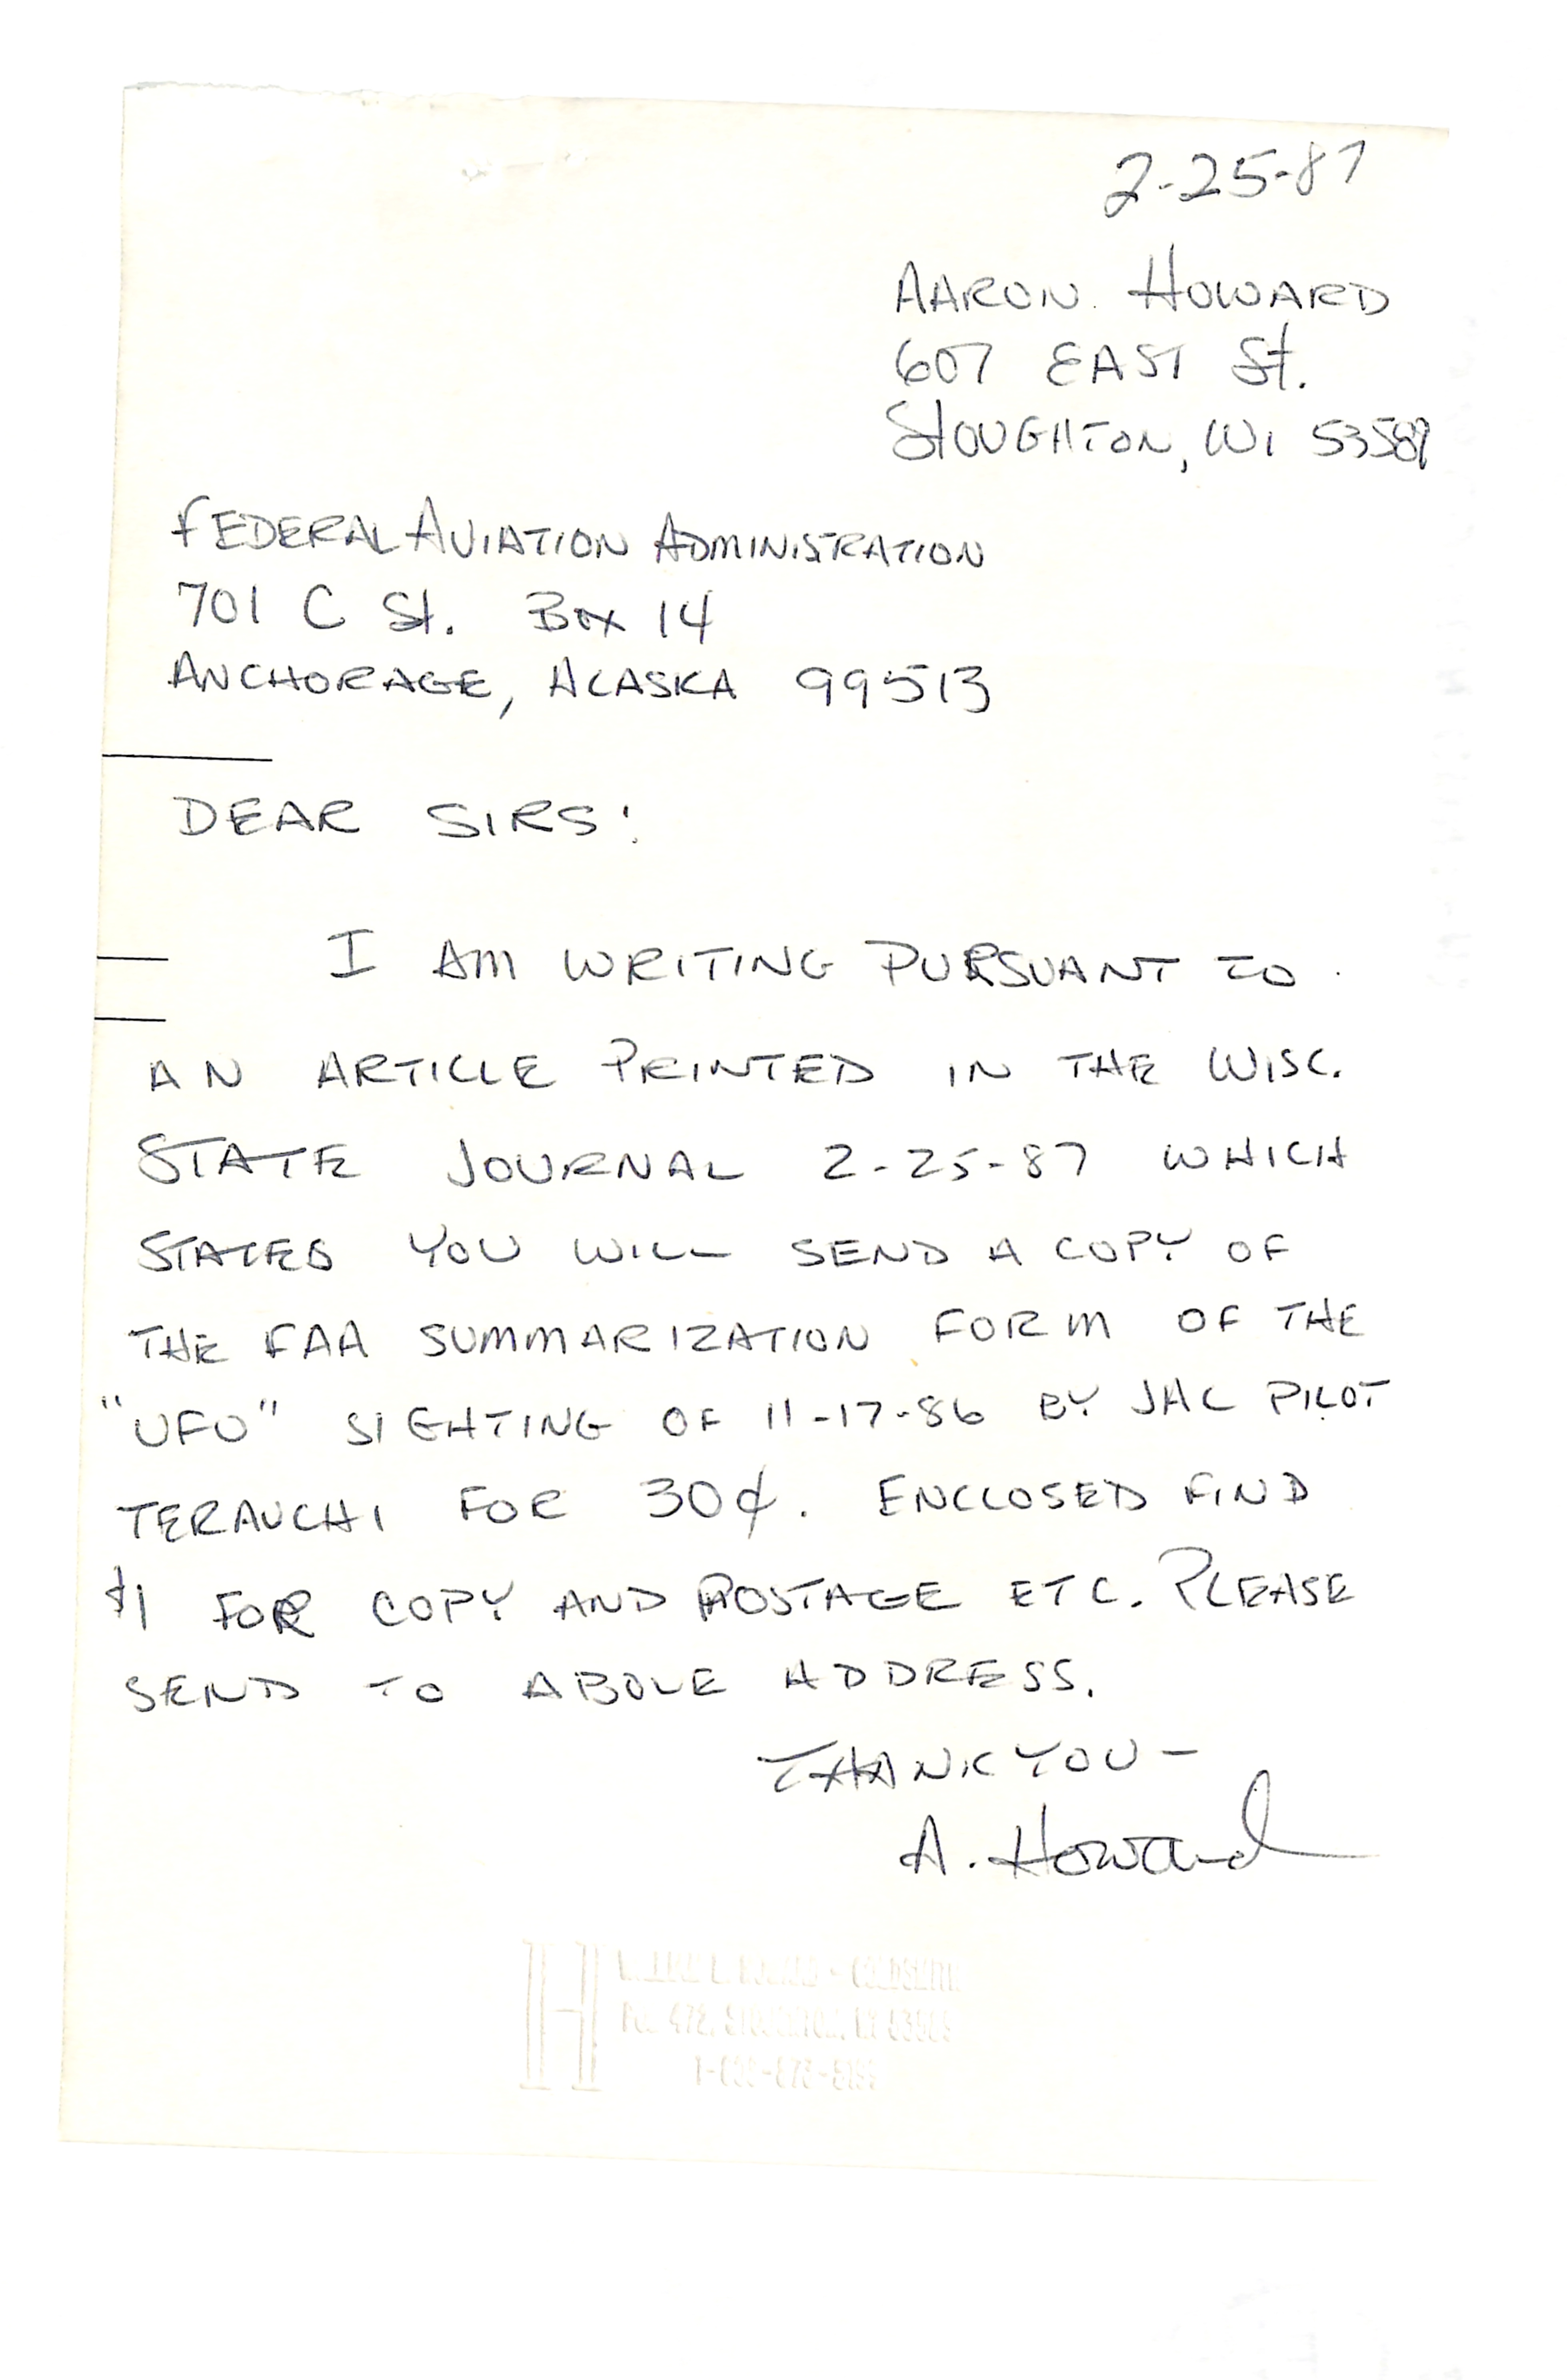 2-25-87
AARON HOWARD
607 EAST St.
STOUGHTON, WI 53589
FEDERAL AVIATION ADMINISTRATION
701 C St. Box 14
ANCHORAGE, ALASKA 99513
DEAR SIRS:
I AM WRITING PURSUANT TO
AN ARTICLE PRINTED IN THE WISC.
STATE JOURNAL 2-25-87 WHICH
STATED YOU WILL SEND A COPY OF
THE FAA SUMMARIZATION FORM OF THE
"UFO" SIGHTING OF 11-17-86 BY JAL PILOT
TERAUCHI FOR 30¢. ENCLOSED FIND
$1 FOR COPY AND POSTAGE ETC. PLEASE
SEND TO ABOVE ADDRESS.
THANK YOU -
A. Howard
H
GOLDSMITH
472, STOUGHTON, WI 53589